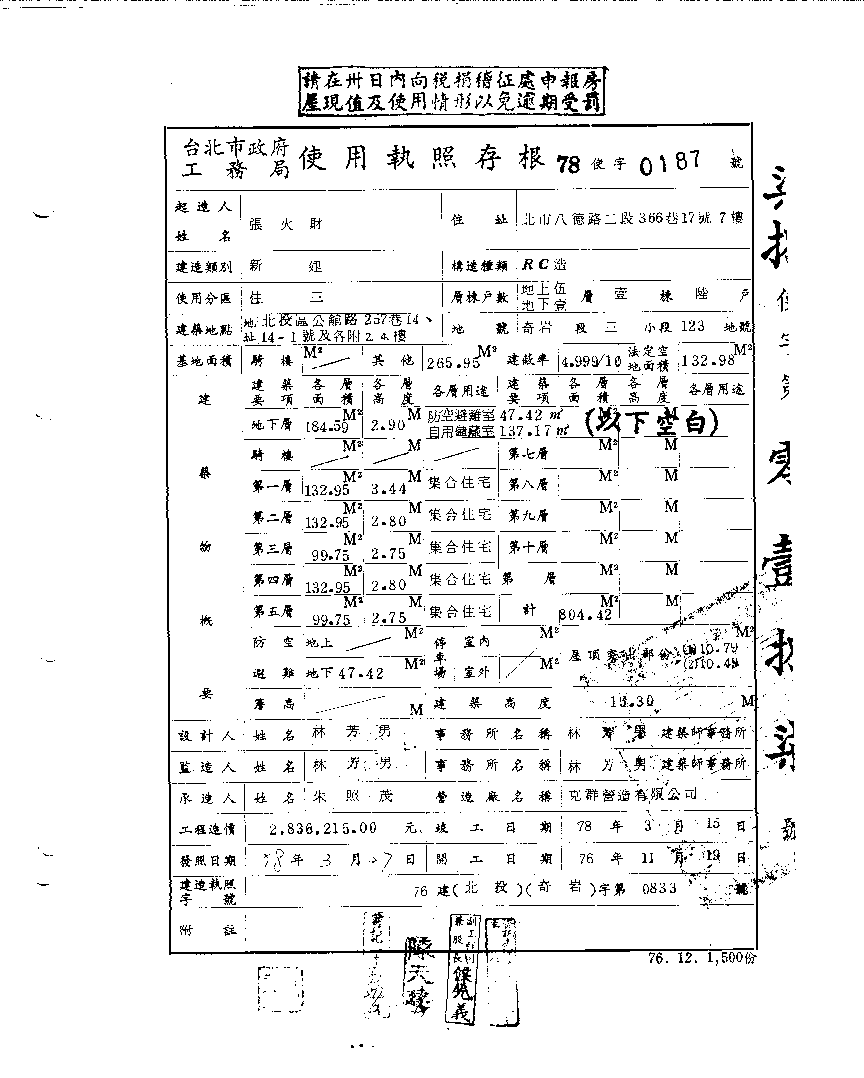 請在卅日內向稅捐稽征處申報房
屋現值及使用情形以免逾期受罰
台北市政府
工務局 使用執照存根 78 使字 0187 號
起造人姓名 張火財 住址 北市八德路二段366巷17號7樓
建造類別 新建 構造種類 RC造
使用分區 住三 層棟戶數 地上伍地下壹層 壹棟 陸戶
建築地點 地址 北投區公館路257巷14、14-1號及各附2.4樓 地號 奇岩段三小段123地號
基地面積 騎樓 M² 其他 265.95 M² 建蔽率 4.999/10 法定空地面積 132.98 M²
建築物概要
建築要項 各層面積 各層高度 各層用途 建築要項 各層面積 各層高度 各層用途
地下層 184.59 M² 2.90 M 防空避難室 47.42 ㎡ 自用儲藏室 137.17 ㎡ (以下空白)
騎樓 M² M 第七層 M² M
第一層 132.95 M² 3.44 M 集合住宅 第八層 M² M
第二層 132.95 M² 2.80 M 集合住宅 第九層 M² M
第三層 99.75 M² 2.75 M 集合住宅 第十層 M² M
第四層 132.95 M² 2.80 M 集合住宅 第 層 M² M
第五層 99.75 M² 2.75 M 集合住宅 計 804.42 M² M
防空避難 地上 M² 停車場 室內 M² 屋頂突出部份 (1)10.79 (2)10.49 M²
地下 47.42 M² 室外 M²
簷高 M 建築高度 15.30 M
設計人 姓名 林芳男 事務所名稱 林芳男建築師事務所
監造人 姓名 林芳男 事務所名稱 林芳男建築師事務所
承造人 姓名 朱照茂 營造廠名稱 克群營造有限公司
工程造價 2,836,215.00 元 竣工日期 78年3月15日
發照日期 78年3月27日 開工日期 76年11月19日
建造執照字號 76建(北投)(奇岩)字第 0833 號
附註
76.12.1,500份